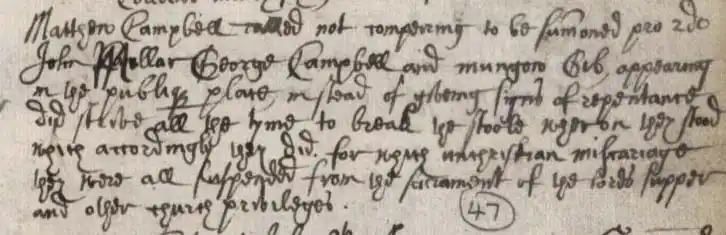 Matthew Campbell called not compeiring to be sumoned pro 2do
John Mellar George Campbell and mungow Gib, appearing
in the publiq place, in stead of giveing signs of repentance
did strive all the tyme to break the stoole wheron they stood
which accordingly they did. for which unchristian miscariage
they were all suspended from the sacrament of the lords supper
and other church priviledges.
47